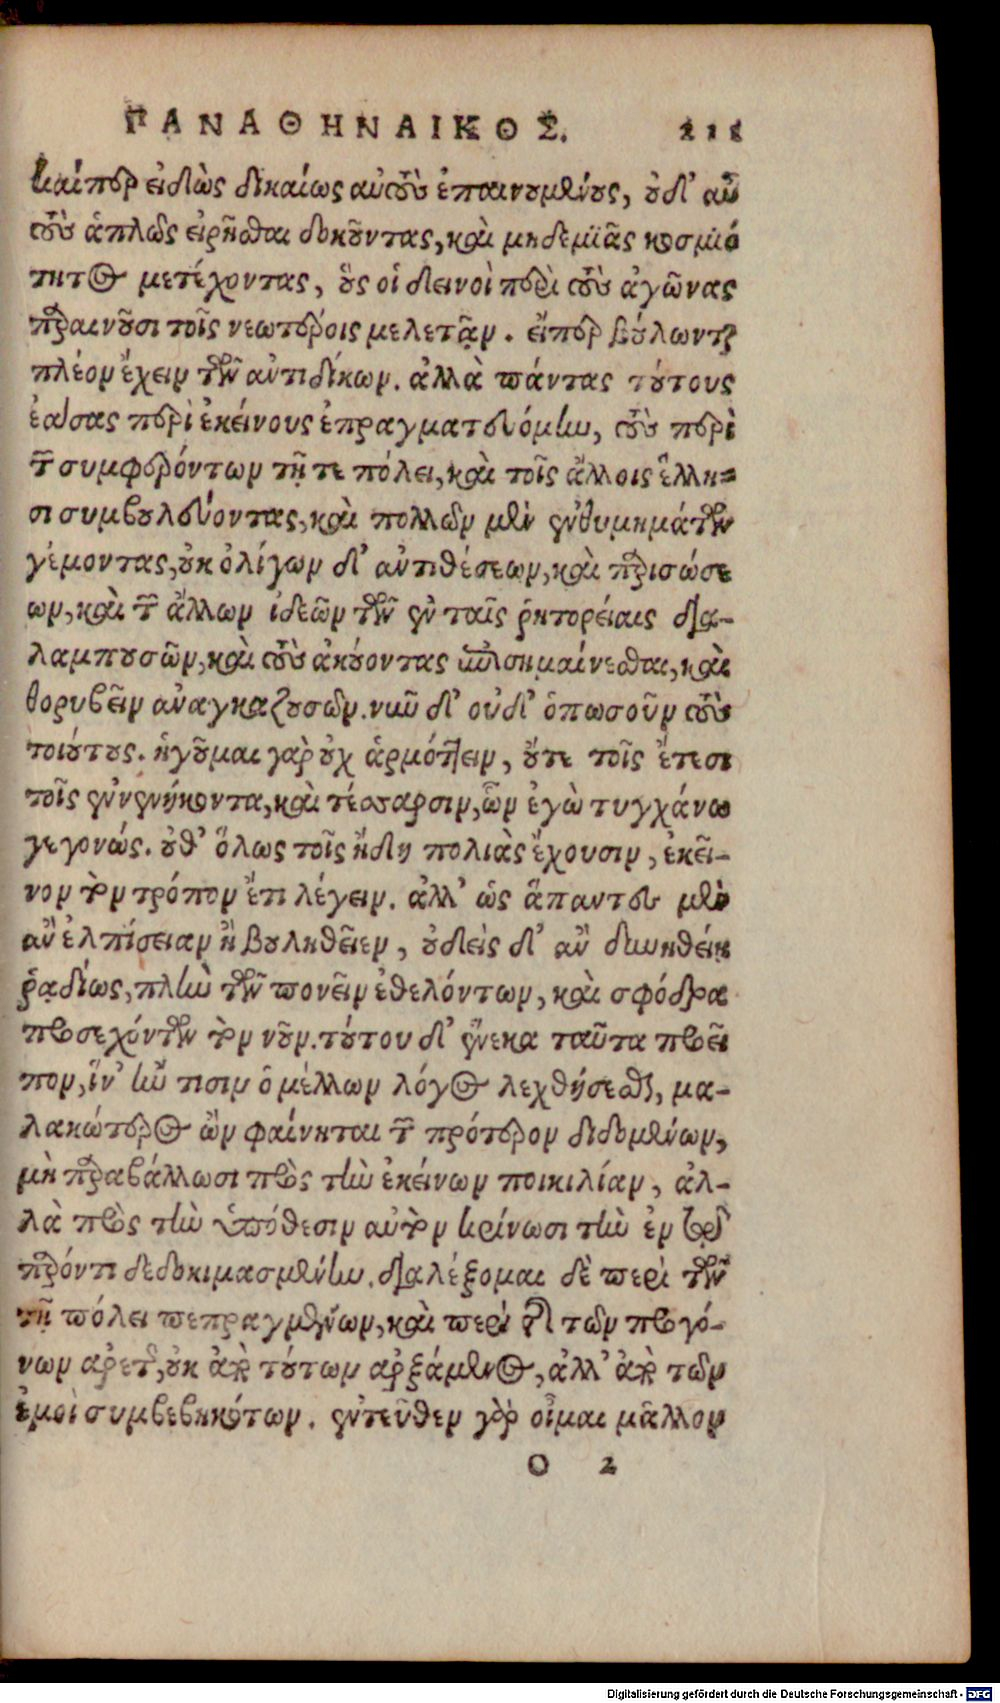 ΠΑΝΑΘΗΝΑΙΚΟΣ. 211
καίπερ εἰδὼς δικαίως αὐτοὺς ἐπαινουμένους, οὐδ' αὖ
τοὺς ἁπλῶς εἰρῆσθαι δοκοῦντας, καὶ μηδεμιᾶς κοσμιό
τητος μετέχοντας, οὓς οἱ δεινοὶ περὶ τοὺς ἀγῶνας
παραινοῦσι τοῖς νεωτέροις μελετᾷν. εἴπερ βούλωνται
πλέον ἔχειν τῶν ἀντιδίκων. ἀλλὰ πάντας τούτους
ἐάσας περὶ ἐκείνους ἐπραγματευόμην, τοὺς περὶ
τῶν συμφερόντων τῇ τε πόλει, καὶ τοῖς ἄλλοις ἕλλη-
σι συμβουλεύοντας, καὶ πολλῶν μὲν ἐνθυμημάτων
γέμοντας, οὐκ ὀλίγων δ' ἀντιθέσεων, καὶ παρισώσε
ων, καὶ τῶν ἄλλων ἰδεῶν τῶν ἐν ταῖς ῥητορείαις δια-
λαμπουσῶν, καὶ τοὺς ἀκούοντας ἐπισημαίνεσθαι, καὶ
θορυβεῖν ἀναγκαζουσῶν. νῦν δ' οὐδ' ὁπωσοῦν τοὺς
τοιούτους. ἡγοῦμαι γὰρ οὐχ ἁρμόττειν, οὔτε τοῖς ἔτεσι
τοῖς ἐνενήκοντα, καὶ τέσσαρσιν, ὧν ἐγὼ τυγχάνω
γεγονώς. οὐθ' ὅλως τοῖς ἤδη πολιὰς ἔχουσιν, ἐκεῖ-
νον τὸν τρόπον ἔτι λέγειν. ἀλλ' ὡς ἅπαντες μὲν
ἂν ἐλπίσειαν ἢ βουληθεῖεν, οὐδεὶς δ' ἂν δυνηθείη
ῥᾳδίως, πλὴν τῶν πονεῖν ἐθελόντων, καὶ σφόδρα
προσεχόντων τὸν νοῦν. τούτου δ' ἕνεκα ταῦτα προεῖ
πον, ἵν' ἤν τισιν ὁ μέλλων λόγος λεχθήσεσθαι, μα-
λακώτερος ὢν φαίνηται τῶν πρότερον διδομένων,
μὴ παραβάλλωσι πρὸς τὴν ἐκείνων ποικιλίαν, ἀλ-
λὰ πρὸς τὴν ὑπόθεσιν αὐτὸν κρίνωσι τὴν ἐν τῷ
παρόντι δεδοκιμασμένην. διαλέξομαι δὲ περὶ τῶν
τῇ πόλει πεπραγμένων, καὶ περὶ τῆς τῶν προγό-
νων ἀρετῆς, οὐκ ἀπὸ τούτων ἀρξάμενος, ἀλλ' ἀπὸ τῶν
ἐμοὶ συμβεβηκότων. ἐντεῦθεν γὰρ οἶμαι μᾶλλον
O 2
Digitalisierung gefördert durch die Deutsche Forschungsgemeinschaft - DFG